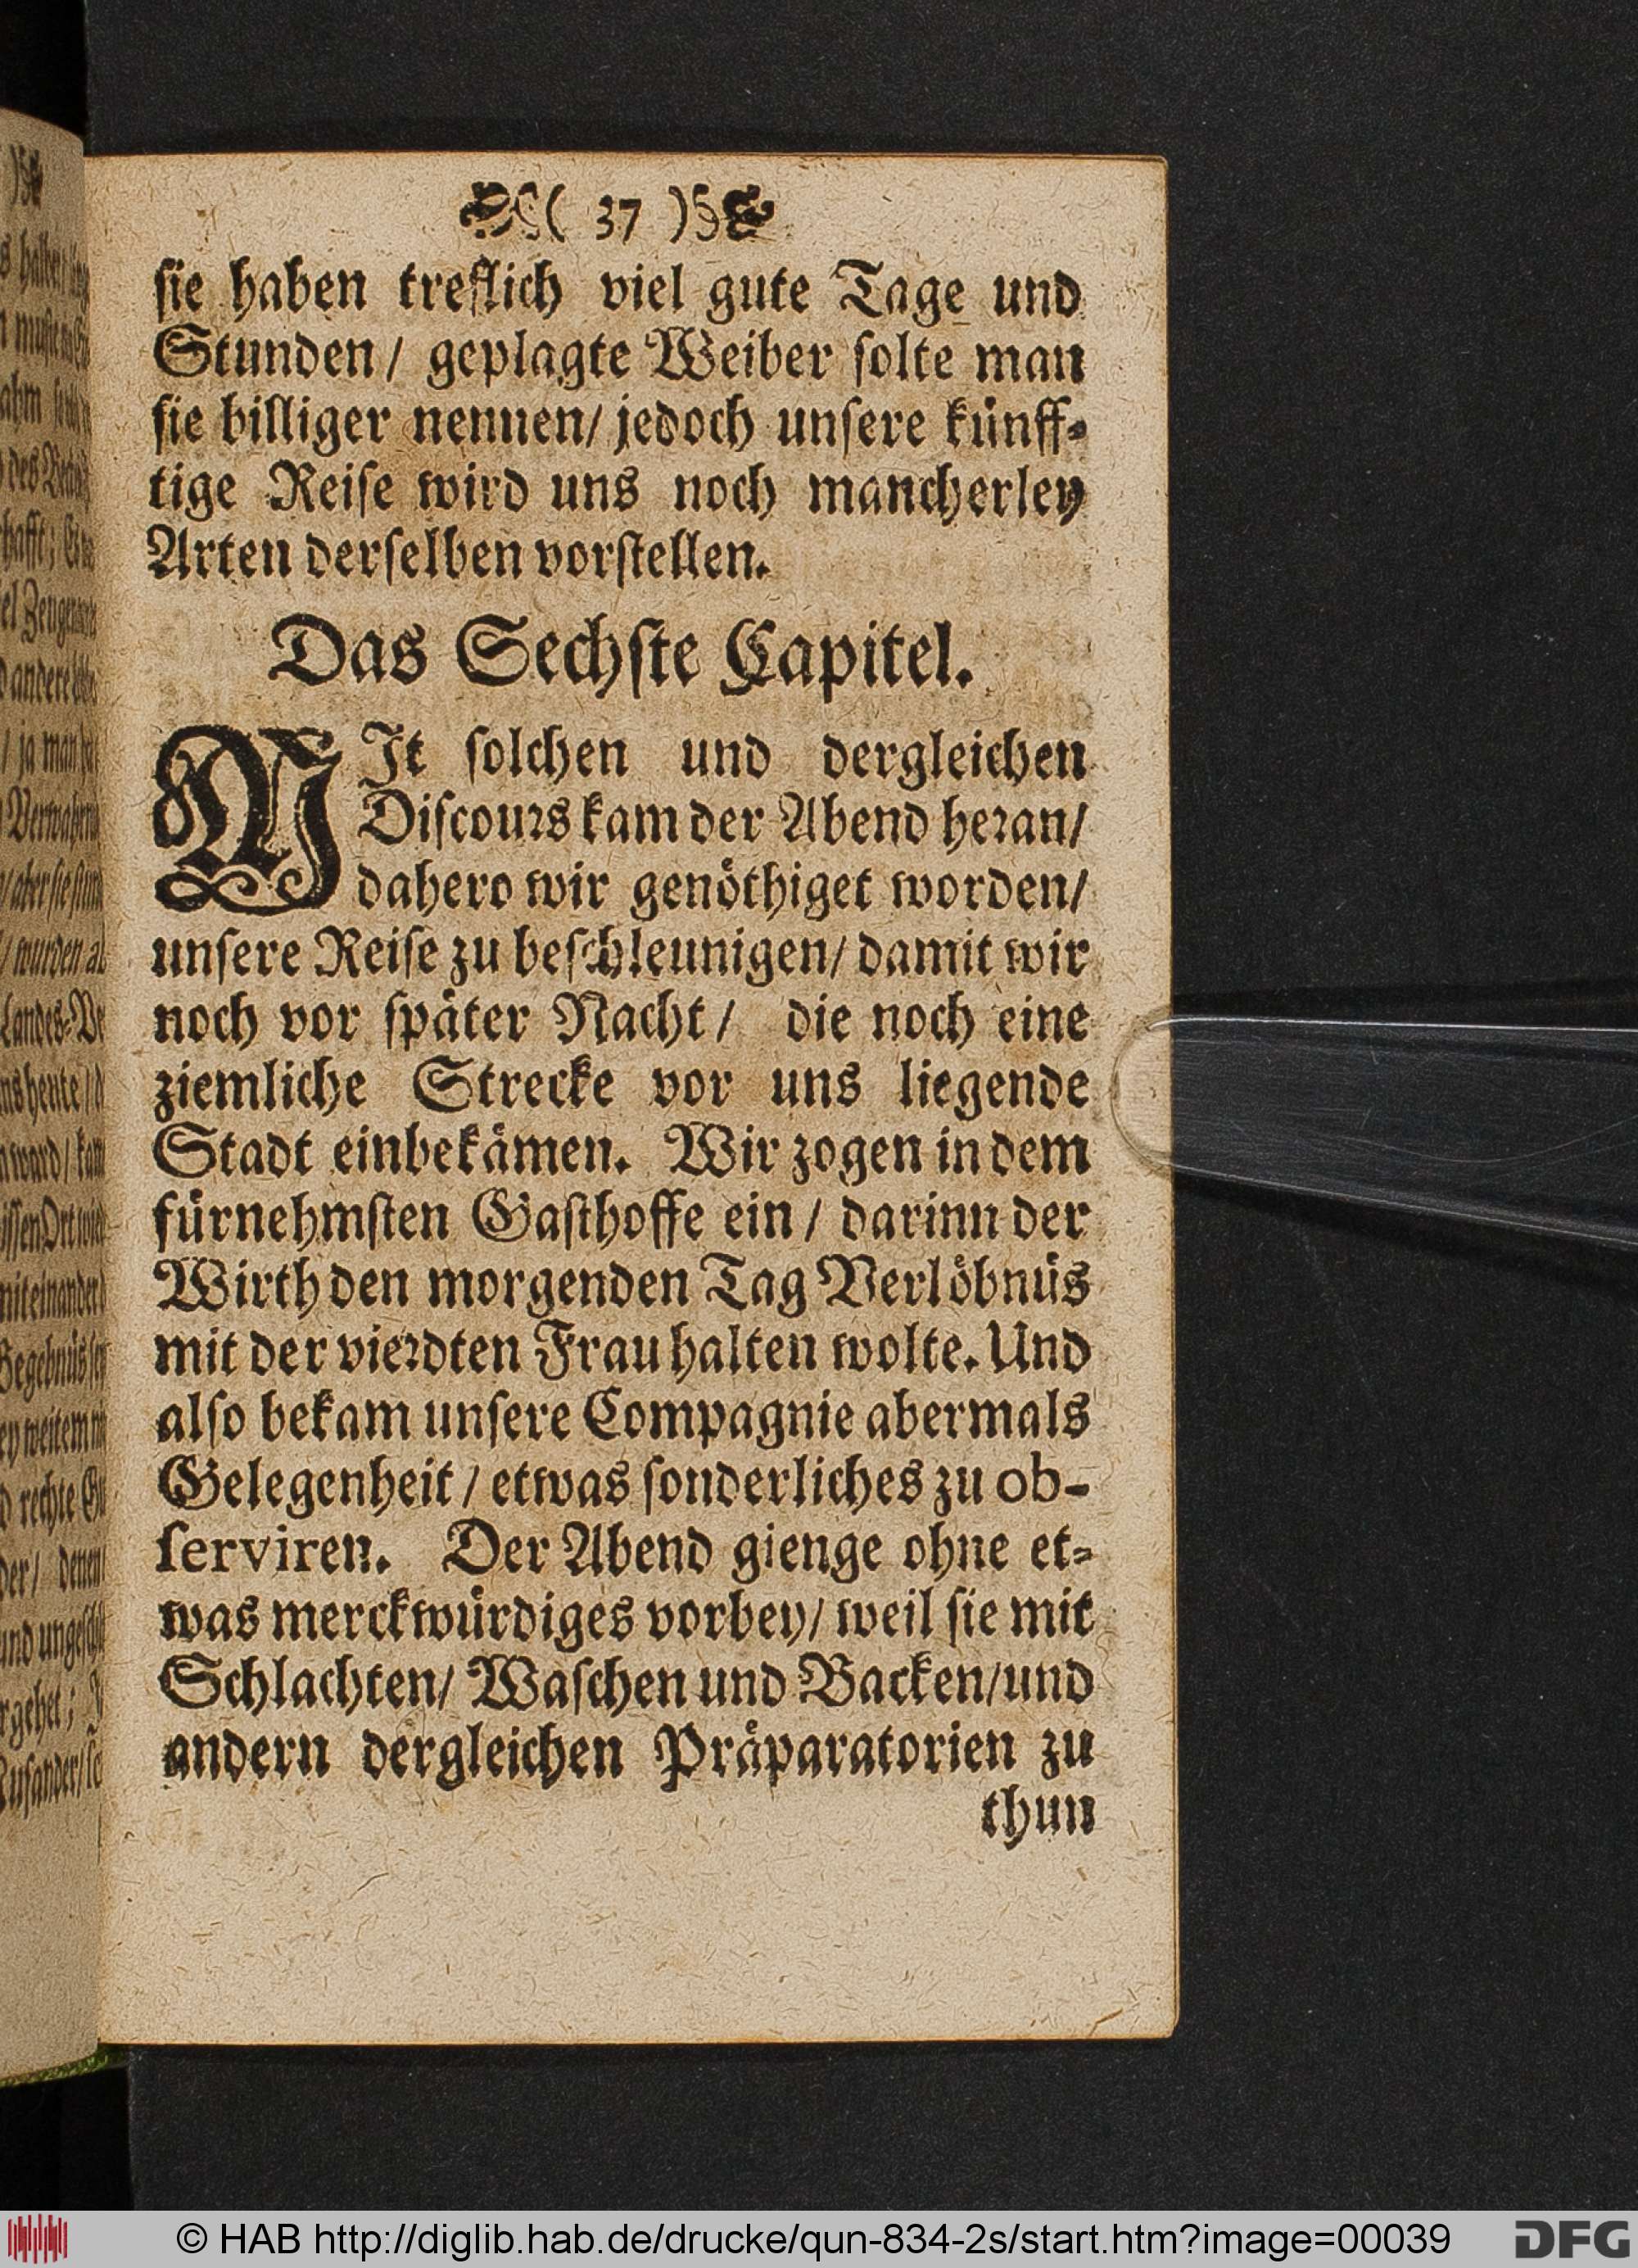 ( 37 )
sie haben treflich viel gute Tage und
Stunden/ geplagte Weiber ſolte man
ſie billiger nennen/ jedoch unſere kuͤnff-
tige Reiſe wird uns noch mancherley
Arten derſelben vorſtellen.
Das Sechſte Capitel.
MIt ſolchen und dergleichen
Diſcours kam der Abend heran/
dahero wir genoͤthiget worden/
unſere Reiſe zu beſchleunigen/ damit wir
noch vor ſpaͤter Nacht/ die noch eine
ziemliche Strecke vor uns liegende
Stadt einbekaͤmen. Wir zogen in dem
fuͤrnehmſten Gaſthoffe ein/ darinn der
Wirth den morgenden Tag Verloͤbnuͤs
mit der vierdten Frau halten wolte. Und
alſo bekam unſere Compagnie abermals
Gelegenheit/ etwas ſonderliches zu ob-
ſerviren. Der Abend gienge ohne et-
was merckwuͤrdiges vorbey/ weil ſie mit
Schlachten/ Waſchen und Backen/und
andern dergleichen Praͤparatorien zu
thun
© HAB http://diglib.hab.de/drucke/qun-834-2s/start.htm?image=00039
DFG